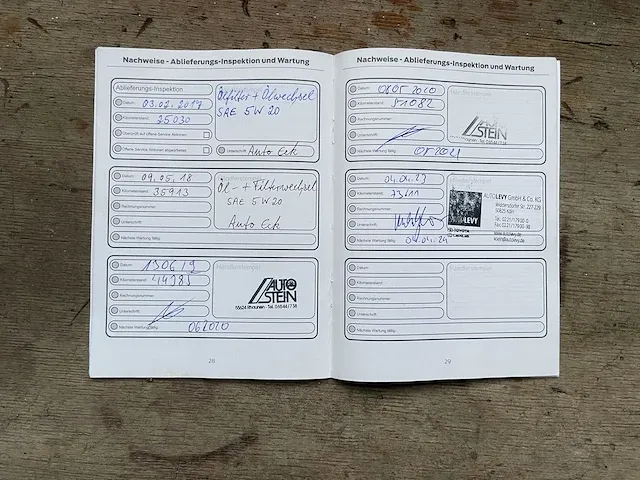 Nachweise - Ablieferungs-Inspektion und Wartung
Ablieferungs-Inspektion
Datum: 03.02.2017
Kilometerstand: 25030
Überprüft auf offene Service Aktionen:
Offene Service Aktionen abgearbeitet:
Ölfilter + Ölwechsel
SAE 5W20
Unterschrift: Auto Eck
Datum: 09.05.18
Kilometerstand: 35913
Rechnungsnummer:
Unterschrift:
Nächste Wartung fällig:
Öl- + Filterwechsel
SAE 5W20
Auto Eck
Datum: 130619
Kilometerstand: 44785
Rechnungsnummer:
Unterschrift:
Nächste Wartung fällig: 062020
Händlerstempel
AUTO
STEIN
28
Nachweise - Ablieferungs-Inspektion und Wartung
Datum: 0605 2020
Kilometerstand: 51082
Rechnungsnummer:
Unterschrift:
Nächste Wartung fällig: 052021
Händlerstempel
AUTO
STEIN
Datum: 04.04.23
Kilometerstand: 73411
Rechnungsnummer:
Unterschrift:
Nächste Wartung fällig: 04.04.24
AUTOLEVY GmbH & Co. KG
LEVY
Datum:
Kilometerstand:
Rechnungsnummer:
Unterschrift:
Nächste Wartung fällig:
Händlerstempel
29